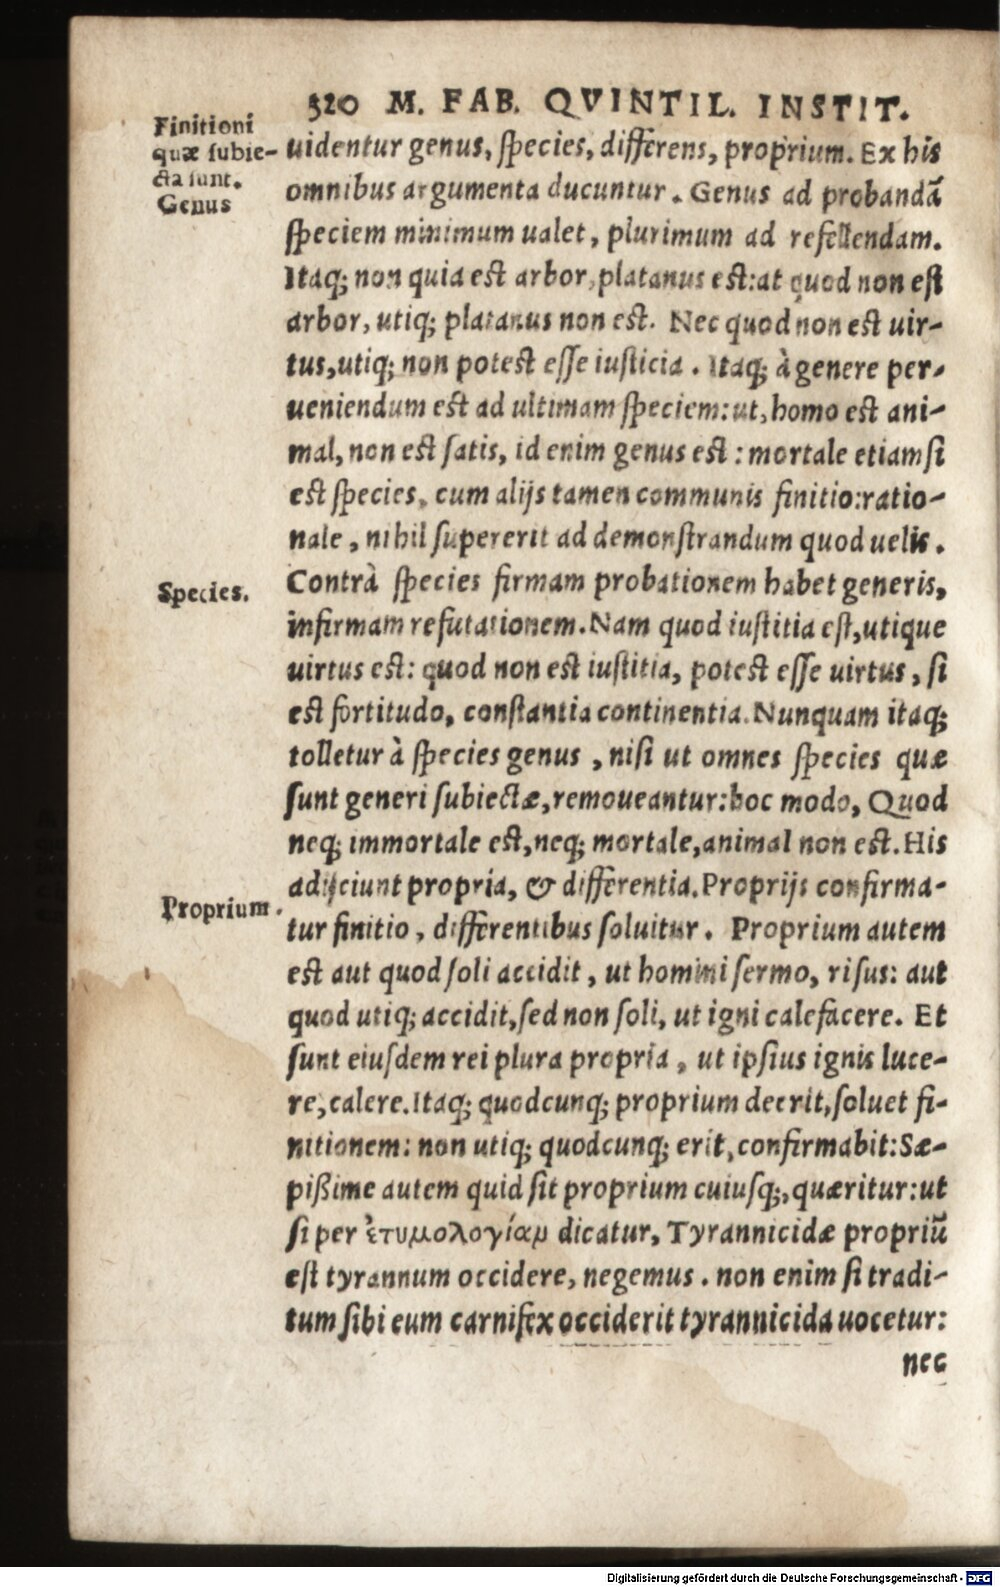 320 M. FAB. QVINTIL. INSTIT.
Finitioni
quæ subie-
cta sunt.
Genus
uidentur genus, species, differens, proprium. Ex his
omnibus argumenta ducuntur. Genus ad probandā
speciem minimum ualet, plurimum ad refellendam.
Itaq; non quia est arbor, platanus est: at quod non est
arbor, utiq; platanus non est. Nec quod non est uir-
tus, utiq; non potest esse iusticia. Itaq; à genere per-
ueniendum est ad ultimam speciem: ut, homo est ani-
mal, non est satis, id enim genus est: mortale etiamsi
est species, cum alijs tamen communis finitio: ratio-
nale, nihil supererit ad demonstrandum quod uelis.
Species.
Contrà species firmam probationem habet generis,
infirmam refutationem. Nam quod iustitia est, utique
uirtus est: quod non est iustitia, potest esse uirtus, si
est fortitudo, constantia continentia. Nunquam itaq;
tolletur à species genus, nisi ut omnes species quæ
sunt generi subiectæ, remoueantur: hoc modo, Quod
neq; immortale est, neq; mortale, animal non est. His
adijciunt propria, & differentia. Proprijs confirma-
Proprium.
tur finitio, differentibus soluitur. Proprium autem
est aut quod soli accidit, ut homini sermo, risus: aut
quod utiq; accidit, sed non soli, ut igni calefacere. Et
sunt eiusdem rei plura propria, ut ipsius ignis luce-
re, calere. Itaq; quodcunq; proprium deerit, soluet fi-
nitionem: non utiq; quodcunq; erit, confirmabit: Sæ-
pißime autem quid sit proprium cuiusq;, quæritur: ut
si per ἐτυμολογίαμ dicatur, Tyrannicidæ propriū
est tyrannum occidere, negemus. non enim si tradi-
tum sibi eum carnifex occiderit tyrannicida uocetur:
nec
Digitalisierung gefördert durch die Deutsche Forschungsgemeinschaft - DFG